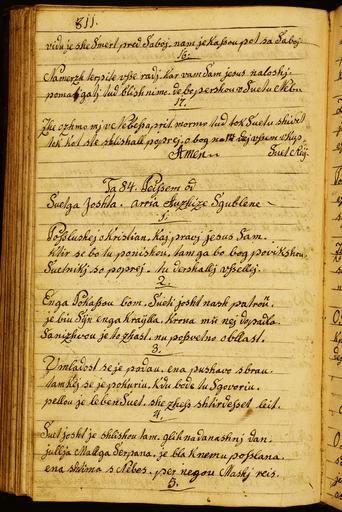 811.
vidu je she Smert pred Saboj, nam je kassou pot sa Saboj
16.
Namerzk terpite vsse radj, kar vam Sam jesus naloshj.
pomagaj tud blishnimo, de be pershou v Suetu Nebu
17.
mj v Nebessa prit mormo tud tok Suetu shivit
tok kot ste shlishall poprej, o bog naM dej vssem vkup
Amen
Ta 84. Peissem od
Suelga Joshta. arria Sgublene
1.
Possluskej o kristian, kaj pravj jesus Sam.
ktir se bo tu ponishou, tamga bo bog povikshou,
Suetnikj so poprej tu dershallej vsselej.
2.
Enga Pokassou bom, Sueti josht nash patron,
je biu Sijn enga krajlla, krona mu nej dopadla
Sanizhvou je to zhast, nu posvetno oblast.
3.
V mladost se je podau, ena pushavo sbrau.
tamkej se je pokuriu, kdu bode tu Sgovoriu,
pellou je leben Suet, she zhes shtirdesset leit.
4.
Suet josht je shlishou tam, glih na danashnj dan,
jullija Mallga Serpana, je bla k nemu posslana.
ena shtima s Nebes, per negou Mashj reis.
5.